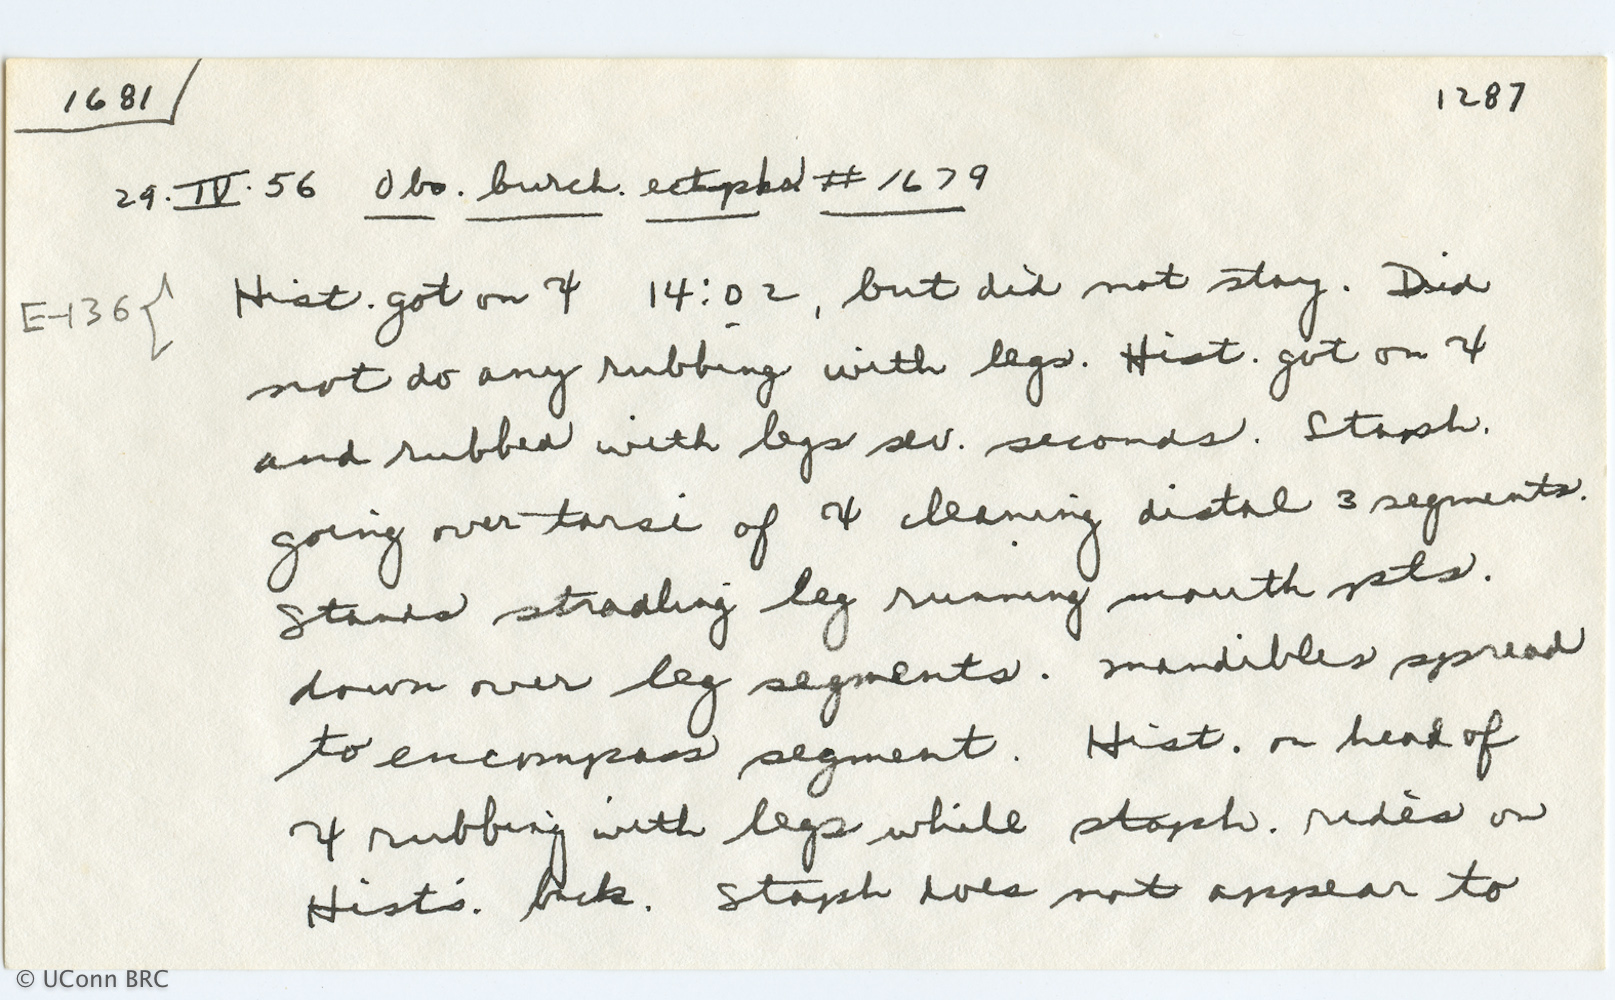 1681
1287
29.IV.56 Obs. burch. #1679
E-136{ Hist. got on ♃ 14:02, but did not stay. Did
not do any rubbing with legs. Hist. got on ♃
and rubbed with legs sev. seconds. Staph.
going over tarsi of ♃ cleaning distal 3 segments.
Stands stradling leg running mouth pts.
down over leg segments. mandibles spread
to encompass segment. Hist. on head of
♃ rubbing with legs while staph. rides on
Hist's. back. Staph does not appear to
© UConn BRC